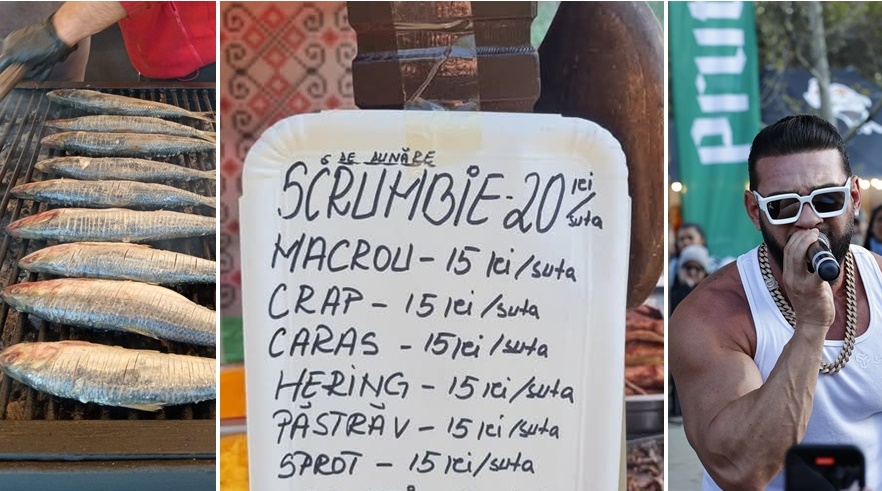 DE DUNĂRE
SCRUMBIE - 20 lei/suta
MACROU - 15 lei/suta
CRAP - 15 lei/suta
CARAS - 15 lei/suta
HERING - 15 lei/suta
PĂSTRĂV - 15 lei/suta
SPROT - 15 lei/suta